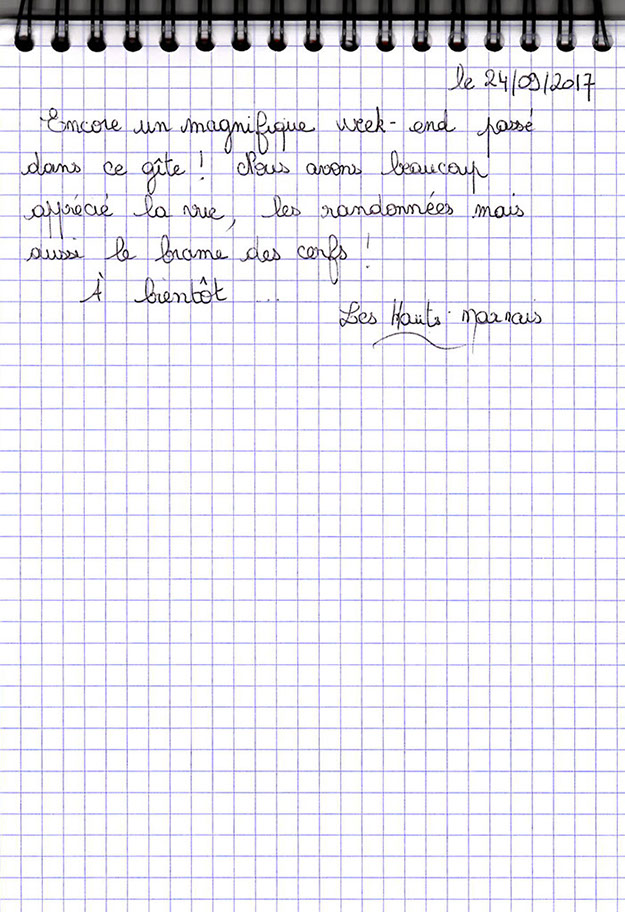 le 24/09/2017
Encore un magnifique week-end passé
dans ce gîte ! Nous avons beaucoup
apprécié la vue, les randonnées mais
aussi le brame des cerfs !
À bientôt ...
Les Hauts-Marnais